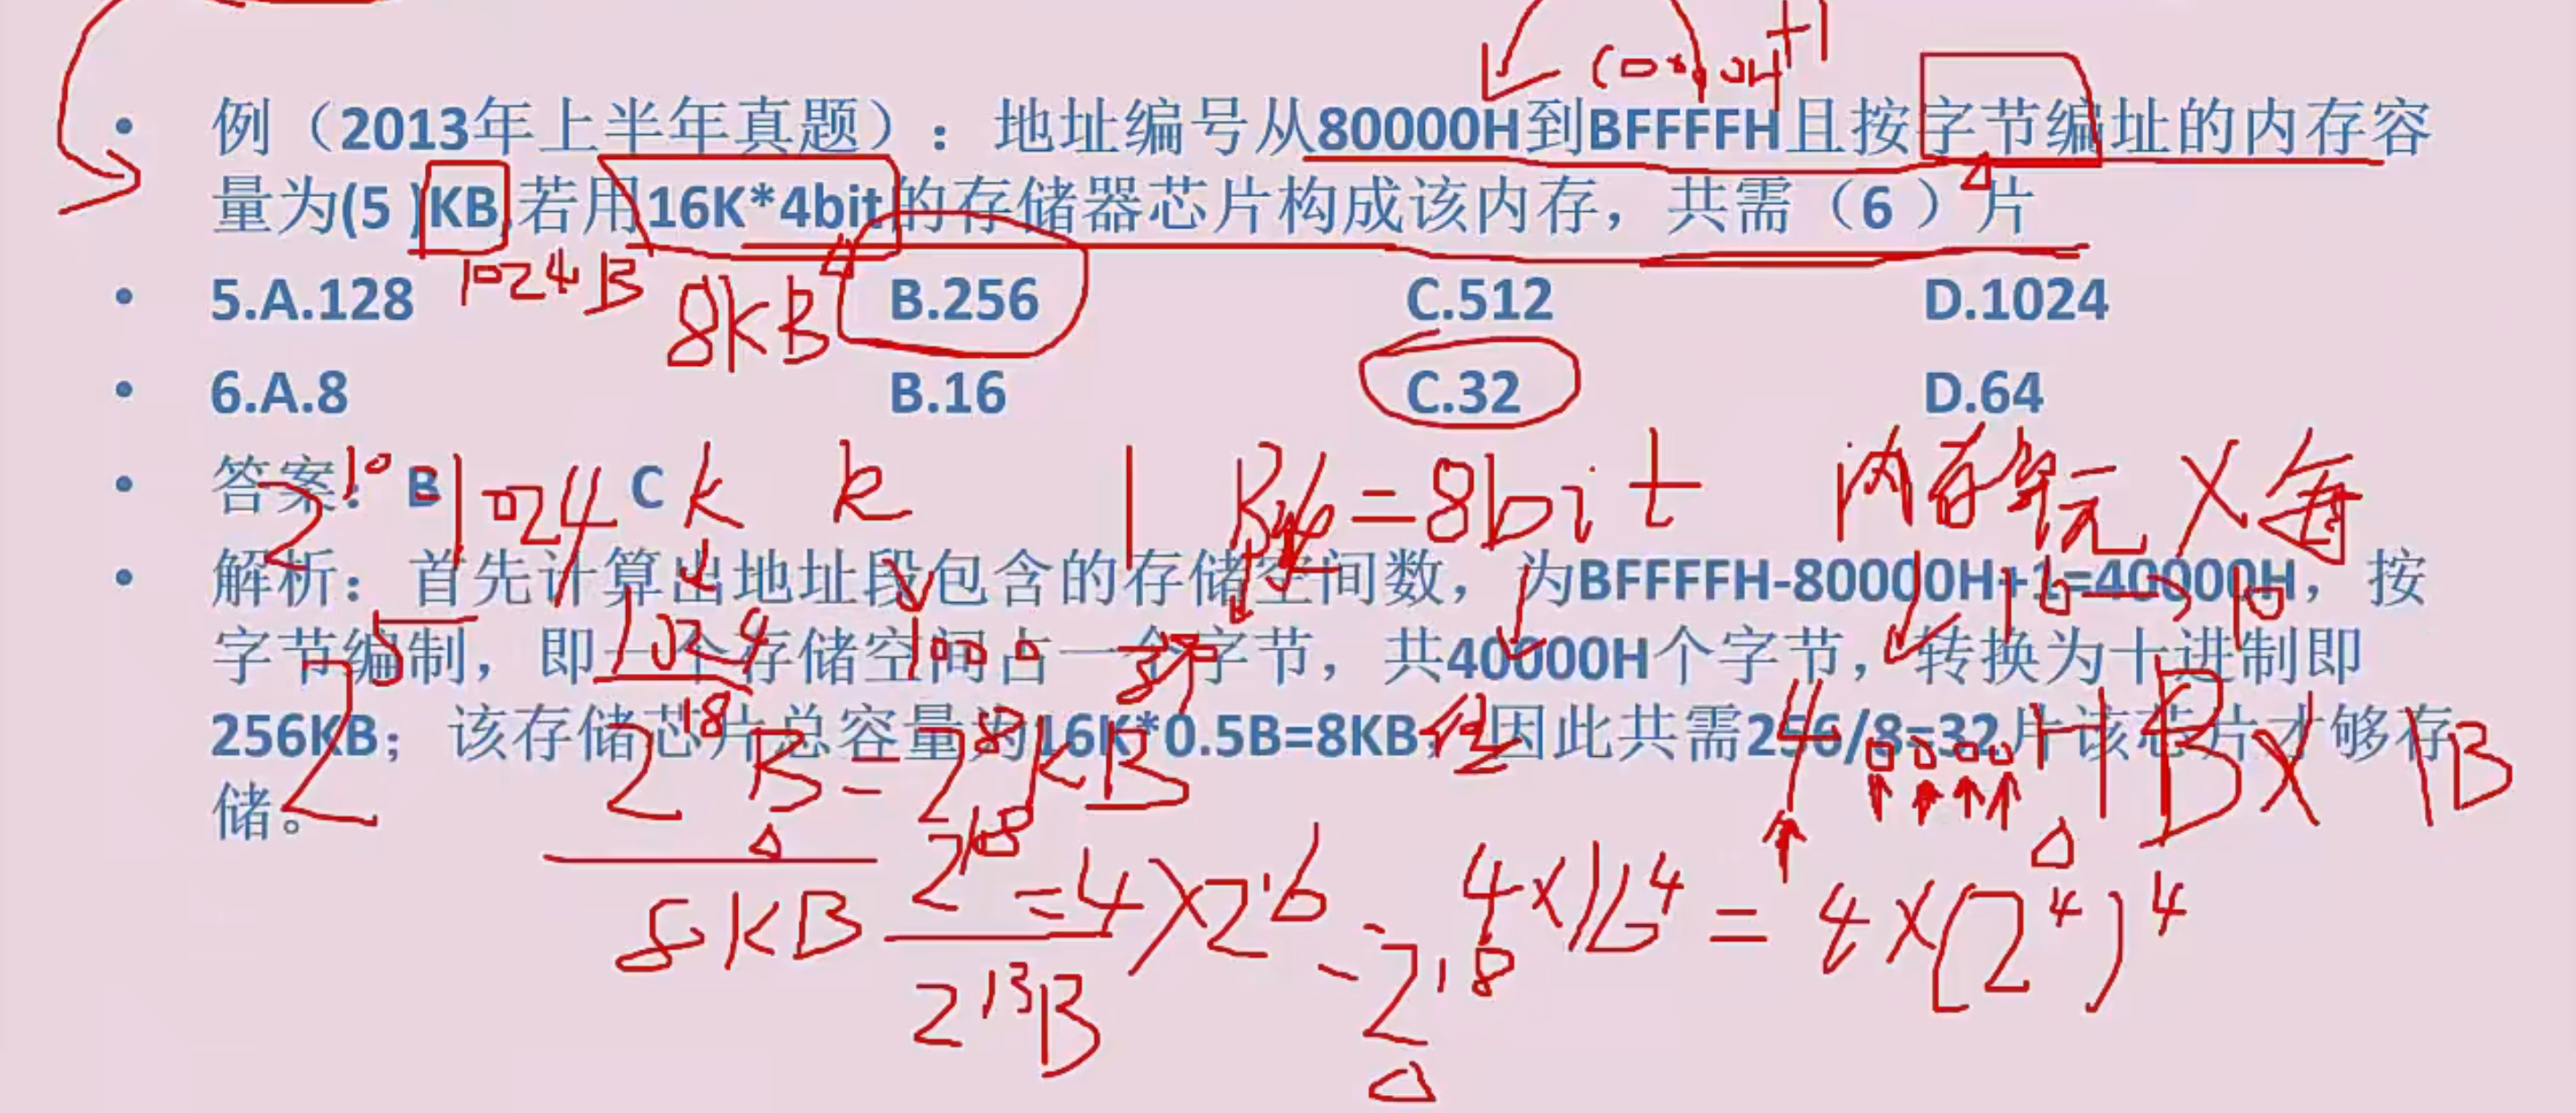 (0x104 +1
例（2013年上半年真题）：地址编号从80000H到BFFFFH且按字节编址的内存容
量为(5 )KB,若用16K*4bit的存储器芯片构成该内存，共需（6 ）片
1024B 8KB
5.A.128 B.256 C.512 D.1024
6.A.8 B.16 C.32 D.64
答案：B C
2^10 1024 k k 1 = 8bit 内存单元 X 每
解析：首先计算出地址段包含的存储空间数，为BFFFFH-80000H+1=40000H，按
1024 1000 16→10
字节编制，即一个存储空间占一个字节，共40000H个字节，转换为十进制即
256KB；该存储芯片总容量为16K*0.5B=8KB，因此共需256/8=32片该芯片才够存
储。
2^5 2^18 B = 2^8 KB 4 0000 H X 1B
8KB 2^18 = 4X2^16 4X16^4 = 4X(2^4)^4
2^13B =2^18